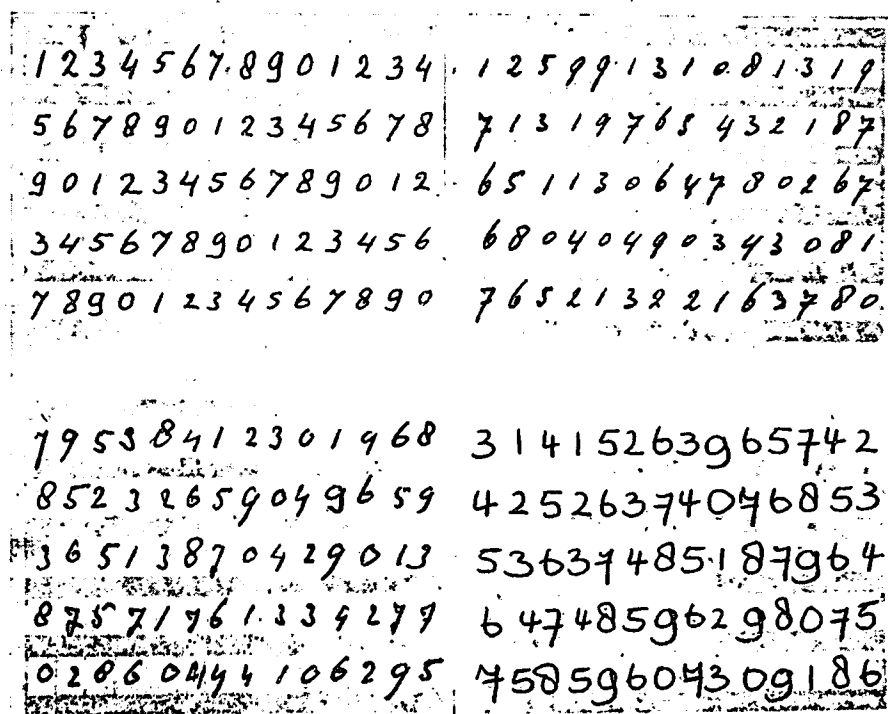 1 2 3 4 5 6 7 8 9 0 1 2 3 4
5 6 7 8 9 0 1 2 3 4 5 6 7 8
9 0 1 2 3 4 5 6 7 8 9 0 1 2
3 4 5 6 7 8 9 0 1 2 3 4 5 6
7 8 9 0 1 2 3 4 5 6 7 8 9 0
1 2 5 9 9 1 3 1 0 8 1 3 1 9
7 1 3 1 9 7 6 5 4 3 2 1 8 7
6 5 1 1 3 0 6 4 7 8 0 2 6 7
6 8 0 4 0 4 9 0 3 4 3 0 8 1
7 6 5 2 1 3 2 2 1 6 3 7 8 0
7 9 5 3 8 4 1 2 3 0 1 9 6 8
8 5 2 3 2 6 5 9 0 4 9 6 5 9
3 6 5 1 3 8 7 0 4 2 9 0 1 3
8 7 5 7 1 7 6 1 3 3 9 2 7 7
0 2 8 6 0 4 4 1 0 6 2 9 5
3 1 4 1 5 2 6 3 9 6 5 7 4 2
4 2 5 2 6 3 7 4 0 7 6 8 5 3
5 3 6 3 7 4 8 5 1 8 7 9 6 4
6 4 7 4 8 5 9 6 2 9 8 0 7 5
7 5 8 5 9 6 0 7 3 0 9 1 8 6